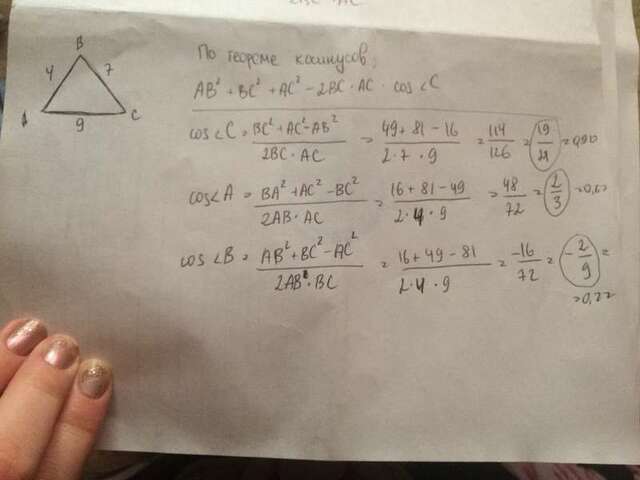 B
4 7
A C
9
По теореме косинусов,
AB² + BC² + AC² - 2BC · AC · cos∠C
cos∠C = BC² + AC² - AB² / 2BC · AC = 49 + 81 - 16 / 2 · 7 · 9 = 114 / 126 = 19 / 21 = 0,90
cos∠A = BA² + AC² - BC² / 2AB · AC = 16 + 81 - 49 / 2 · 4 · 9 = 48 / 72 = 2 / 3 = 0,67
cos∠B = AB² + BC² - AC² / 2AB · BC = 16 + 49 - 81 / 2 · 4 · 9 = -16 / 72 = - 2 / 9 =
= 0,22